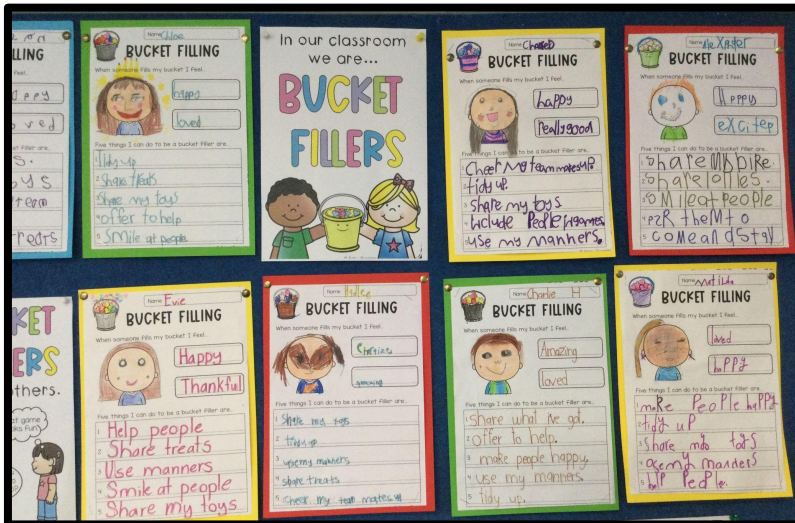 LLING
feel...
appy
oved
filler are...
s.
oys
team
treats
Name Chloe
BUCKET FILLING
When someone fills my bucket I feel...
happy
loved
Five things I can do to be a bucket filler are...
1 Tidy up
2 Share treats
3 Share my toys
4 offer to help
5 Smile at people
In our classroom
we are...
BUCKET
FILLERS
Name
BUCKET FILLING
When someone fills my bucket I feel...
happy
Really good
Five things I can do to be a bucket filler are...
1 Cheer my team mates up.
2 tidy up.
3 share my toys
4 include People in games.
5 use my manners.
Name
BUCKET FILLING
When someone fills my bucket I feel...
Happy
eXcited
Five things I can do to be a bucket filler are...
1 Share my bike.
2 Share lollies.
3 sMile at people
4 theM to
5 coMe and Stay
KET
ERS
thers.
et game
ks fun!
Name Evie
BUCKET FILLING
When someone fills my bucket I feel...
Happy
Thankful
Five things I can do to be a bucket filler are...
1 Help people
2 Share treats
3 Use manners
4 Smile at people
5 Share my toys
Name
BUCKET FILLING
When someone fills my bucket I feel...
amazing
Five things I can do to be a bucket filler are...
1 Share my toys
2 tidy up
3 use my manners
4 share treats
5 Cheer my team mates up
Name Charlie H
BUCKET FILLING
When someone fills my bucket I feel...
Amazing
loved
Five things I can do to be a bucket filler are...
1 Share what I've got.
2 offer to help.
3 make people happy.
4 use my manners.
5 tidy up.
Name Matilda
BUCKET FILLING
When someone fills my bucket I feel...
loved
haPPy
Five things I can do to be a bucket filler are...
1 make PeoPle haPPy
2 tidy uP
3 Share toys
4 my manners
5 PeoPle.